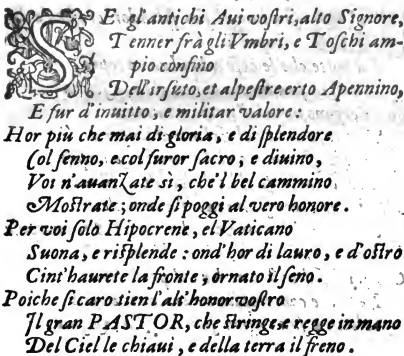 SE gl'antichi Aui vostri, alto Signore,
Tenner frà gli Vmbri, e Toschi am-
pio confino
Dell'irsuto, et alpestre erto Apennino,
E fur d'inuitto, e militar valore:
Hor più che mai di gloria, e di splendore
Col senno, e col furor sacro, e diuino,
Voi n'auanzate sì, che'l bel cammino
Mostrate; onde si poggi al vero honore.
Per voi solo Hipocrene, el Vaticano
Suona, e risplende: ond'hor di lauro, e d'ostro
Cint'haurete la fronte, ornato il seno.
Poiche sì caro tien l'alt'honor vostro
Il gran PASTOR, che stringe, e regge in mano
Del Ciel le chiaui, e della terra il freno.